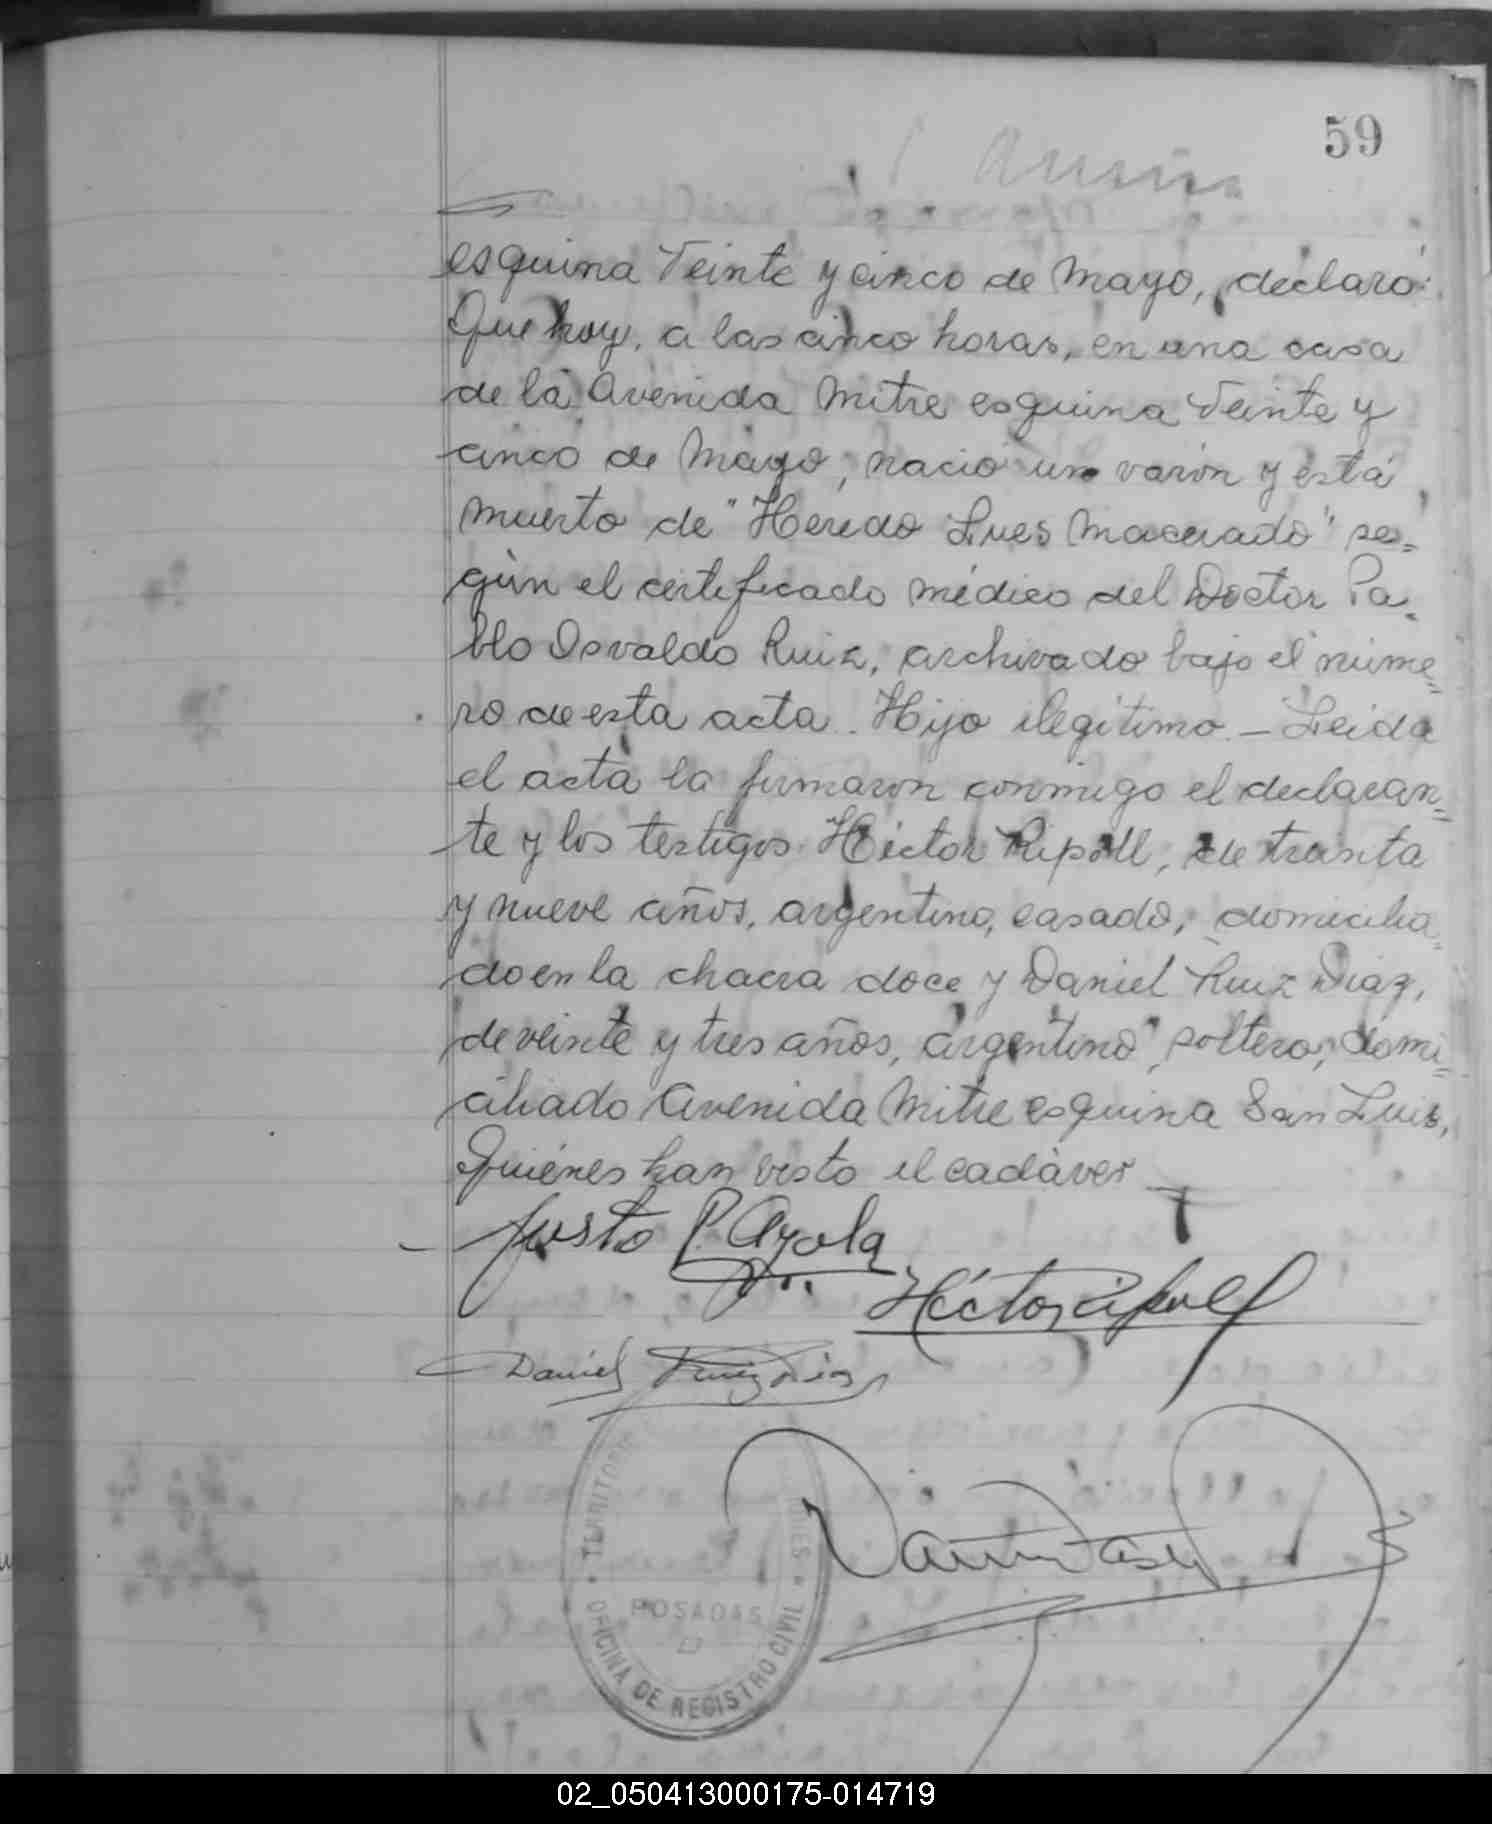 59
esquina Veinte y cinco de Mayo, declaró:
Que hoy, a las cinco horas, en una casa
de la Avenida Mitre esquina Veinte y
cinco de Mayo, nació un varón y está
muerto de "Heredo Lues Macerado" se=
gún el certificado médico del Doctor Pa=
blo Osvaldo Ruiz, archivado bajo el núme=
ro de esta acta. Hijo ilegítimo.- Leida
el acta la firmaron conmigo el declaran=
te y los testigos Héctor Ripoll, de treinta
y nueve años, argentino, casado, domicilia=
do en la chacra doce y Daniel Ruiz Diaz,
de veinte y tres años, argentino, soltero, domi=
ciliado Avenida Mitre esquina San Luis,
Quiénes han visto el cadáver
Justo P. Ayola
Héctor Ripoll
Daniel Ruiz Diaz
TERRITORIO
POSADAS
OFICINA DE REGISTRO CIVIL
02_050413000175-014719